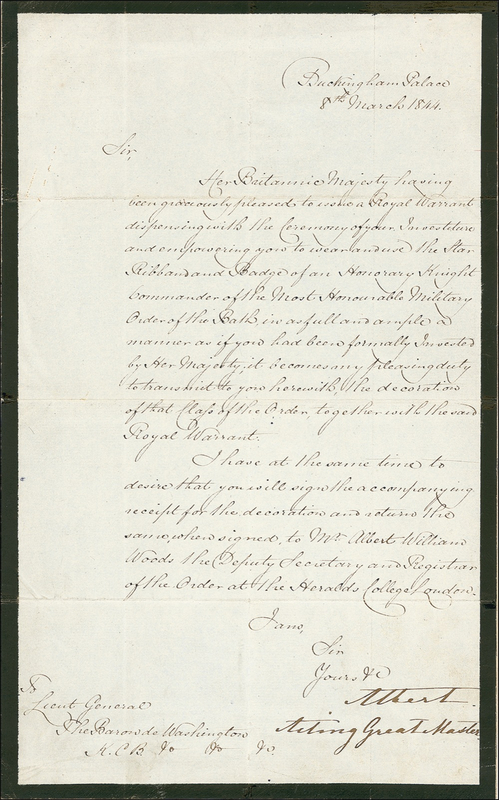 Buckingham Palace
8th March 1844.
Sir,
Her Britannic Majesty having
been graciously pleased to issue a Royal Warrant
dispensing with the Ceremony of your Investiture
and empowering you to wear and use the Star
Ribband and Badge of an Honorary Knight
Commander of the Most Honourable Military
Order of the Bath in as full and ample a
manner as if you had been formally Invested
by Her Majesty, it becomes my pleasing duty
to transmit to you herewith, the decoration
of that Class of the Order, together with the said
Royal Warrant.
I have at the same time to
desire that you will sign the accompanying
receipt for the decoration and return the
same, when signed, to Mr. Albert William
Woods the Deputy Secretary and Registrar
of the Order at the Heralds College London.
I am,
Sir
Yours &c
Albert
Acting Great Master
To
Lieut General
The Baron de Washington
K.C.B. &c &c &c.